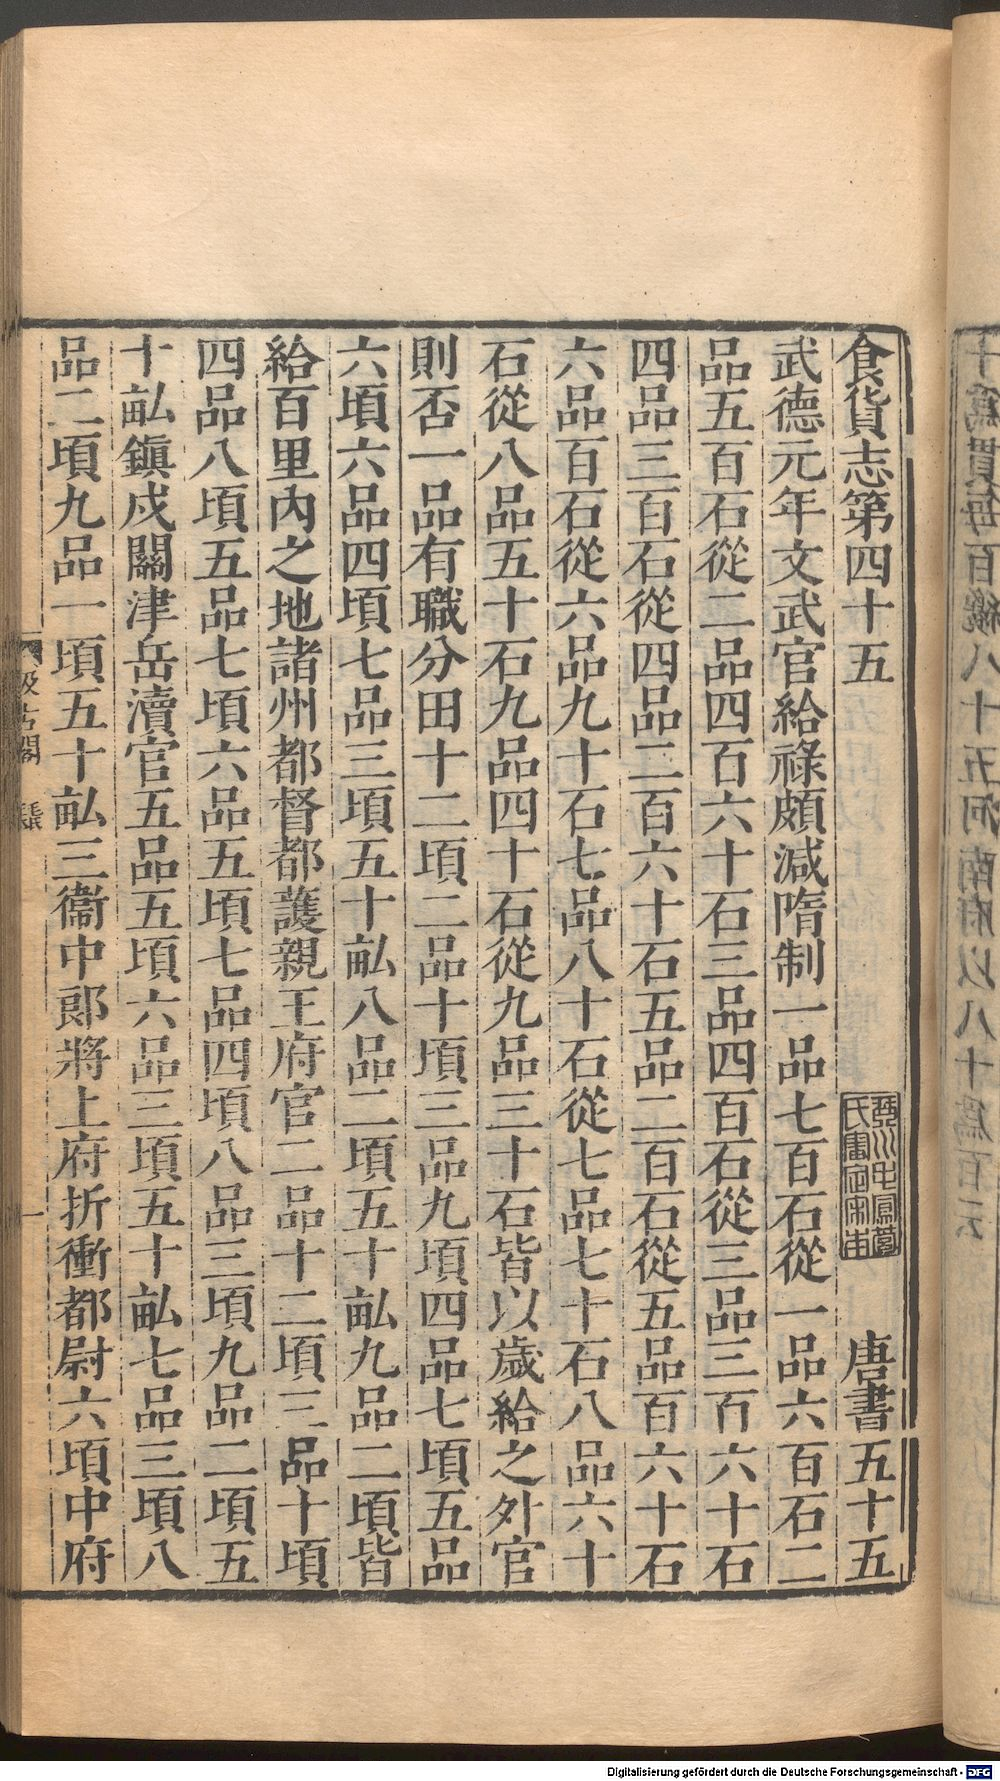 食貨志第四十五 唐書 五十五
武德元年文武官給祿頗減隋制一品七百石從一品六百石二
品五百石從二品四百六十石三品四百石從三品三百六十石
四品三百石從四品二百六十石五品二百石從五品百六十石
六品百石從六品九十石七品八十石從七品七十石八品六十
石從八品五十石九品四十石從九品三十石皆以歲給之外官
則否一品有職分田十二頃二品十頃三品九頃四品七頃五品
六頃六品四頃七品三頃五十畝八品二頃五十畝九品二頃皆
給百里內之地諸州都督都護親王府官二品十二頃三品十頃
四品八頃五品七頃六品五頃七品四頃八品三頃九品二頃五
十畝鎭戍關津岳瀆官五品五頃六品三頃五十畝七品三頃八
品二頃九品一頃五十畝三衞中郎將上府折衝都尉六頃中府
汲古閣
一
Digitalisierung gefördert durch die Deutsche Forschungsgemeinschaft - DFG